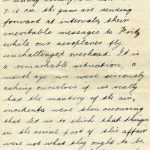 7.15 a.m. the guns are sending
forward at intervals their
inevitable messages to Fritz
while our aeroplanes fly
unchallenged overhead. It is
a remarkable situation, a
month ago we were seriously
asking ourselves if we really
had the mastery of the air,
incidents were then occurring
that led us to think that things
in the aerial part of this affair
were not what they ought to be